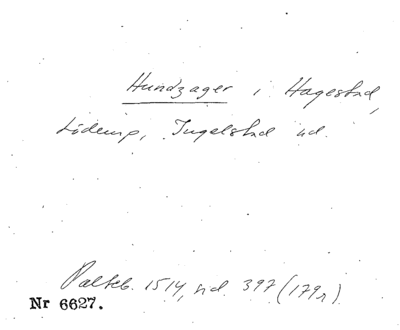 Hundzager i Hagestad,
Löderup, Ingelstad hd.
Palteb. 1514, sid. 397 (179r).
Nr 6627.